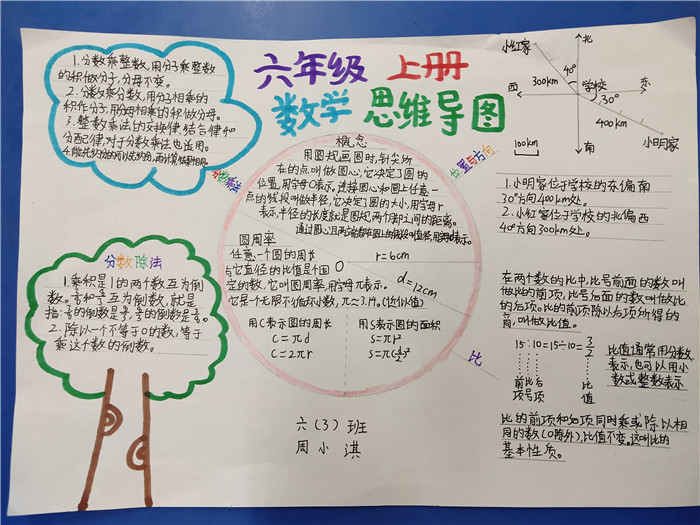 六年级 上册
数学 思维导图
1.分数乘整数，用分子乘整数
的积做分子，分母不变。
2.分数乘分数，用分子相乘的
积作分子，用分母相乘的积做分母。
3.整数乘法的交换律，结合律和
分配律，对于分数乘法也适用。
4.能先约分的可以先约分，再计算结果相同。
分数乘法
概念
用圆规画圆时，针尖所
在的点叫做圆心，它决定了圆的
位置，用字母O表示。连接圆心和圆上任意一
点的线段叫做半径，它决定了圆的大小，用字母r
表示，半径的长度就是圆规两个脚之间的距离。
通过圆心且两端都在圆上的线段叫直径，用字母d表示。
圆周率
任意一个圆的周长
与它直径的比值是个固
定的数，它叫圆周率，用字母π表示。
它是一个无限不循环小数，π≈3.14。(近似值)
r=6cm
O
d=12cm
用C表示圆的周长
C=πd
C=2πr
用S表示圆的面积
S=πr²
S=π(d/2)²
位置与方向
小红家
北
40°
300km
学校
西
东
30°
400km
100km
南
小明家
1.小明家位于学校的东偏南
30°方向400km处。
2.小红家位于学校的北偏西
40°方向300km处。
分数除法
1.乘积是1的两个数互为倒
2.除以一个不等于0的数，等于
乘这个数的倒数。
比
在两个数的比中，比号前面的数叫
做比的前项，比号后面的数叫做比
的后项。比的前项除以后项所得的
商，叫做比值。
15:10=15÷10=3/2
前比后 比
项号项 值
比值通常用分数
表示，也可以用小
数或整数表示
比的前项和后项同时乘或除以相
同的数(0除外)，比值不变。这叫比的
基本性质。
六(3)班
周小淇